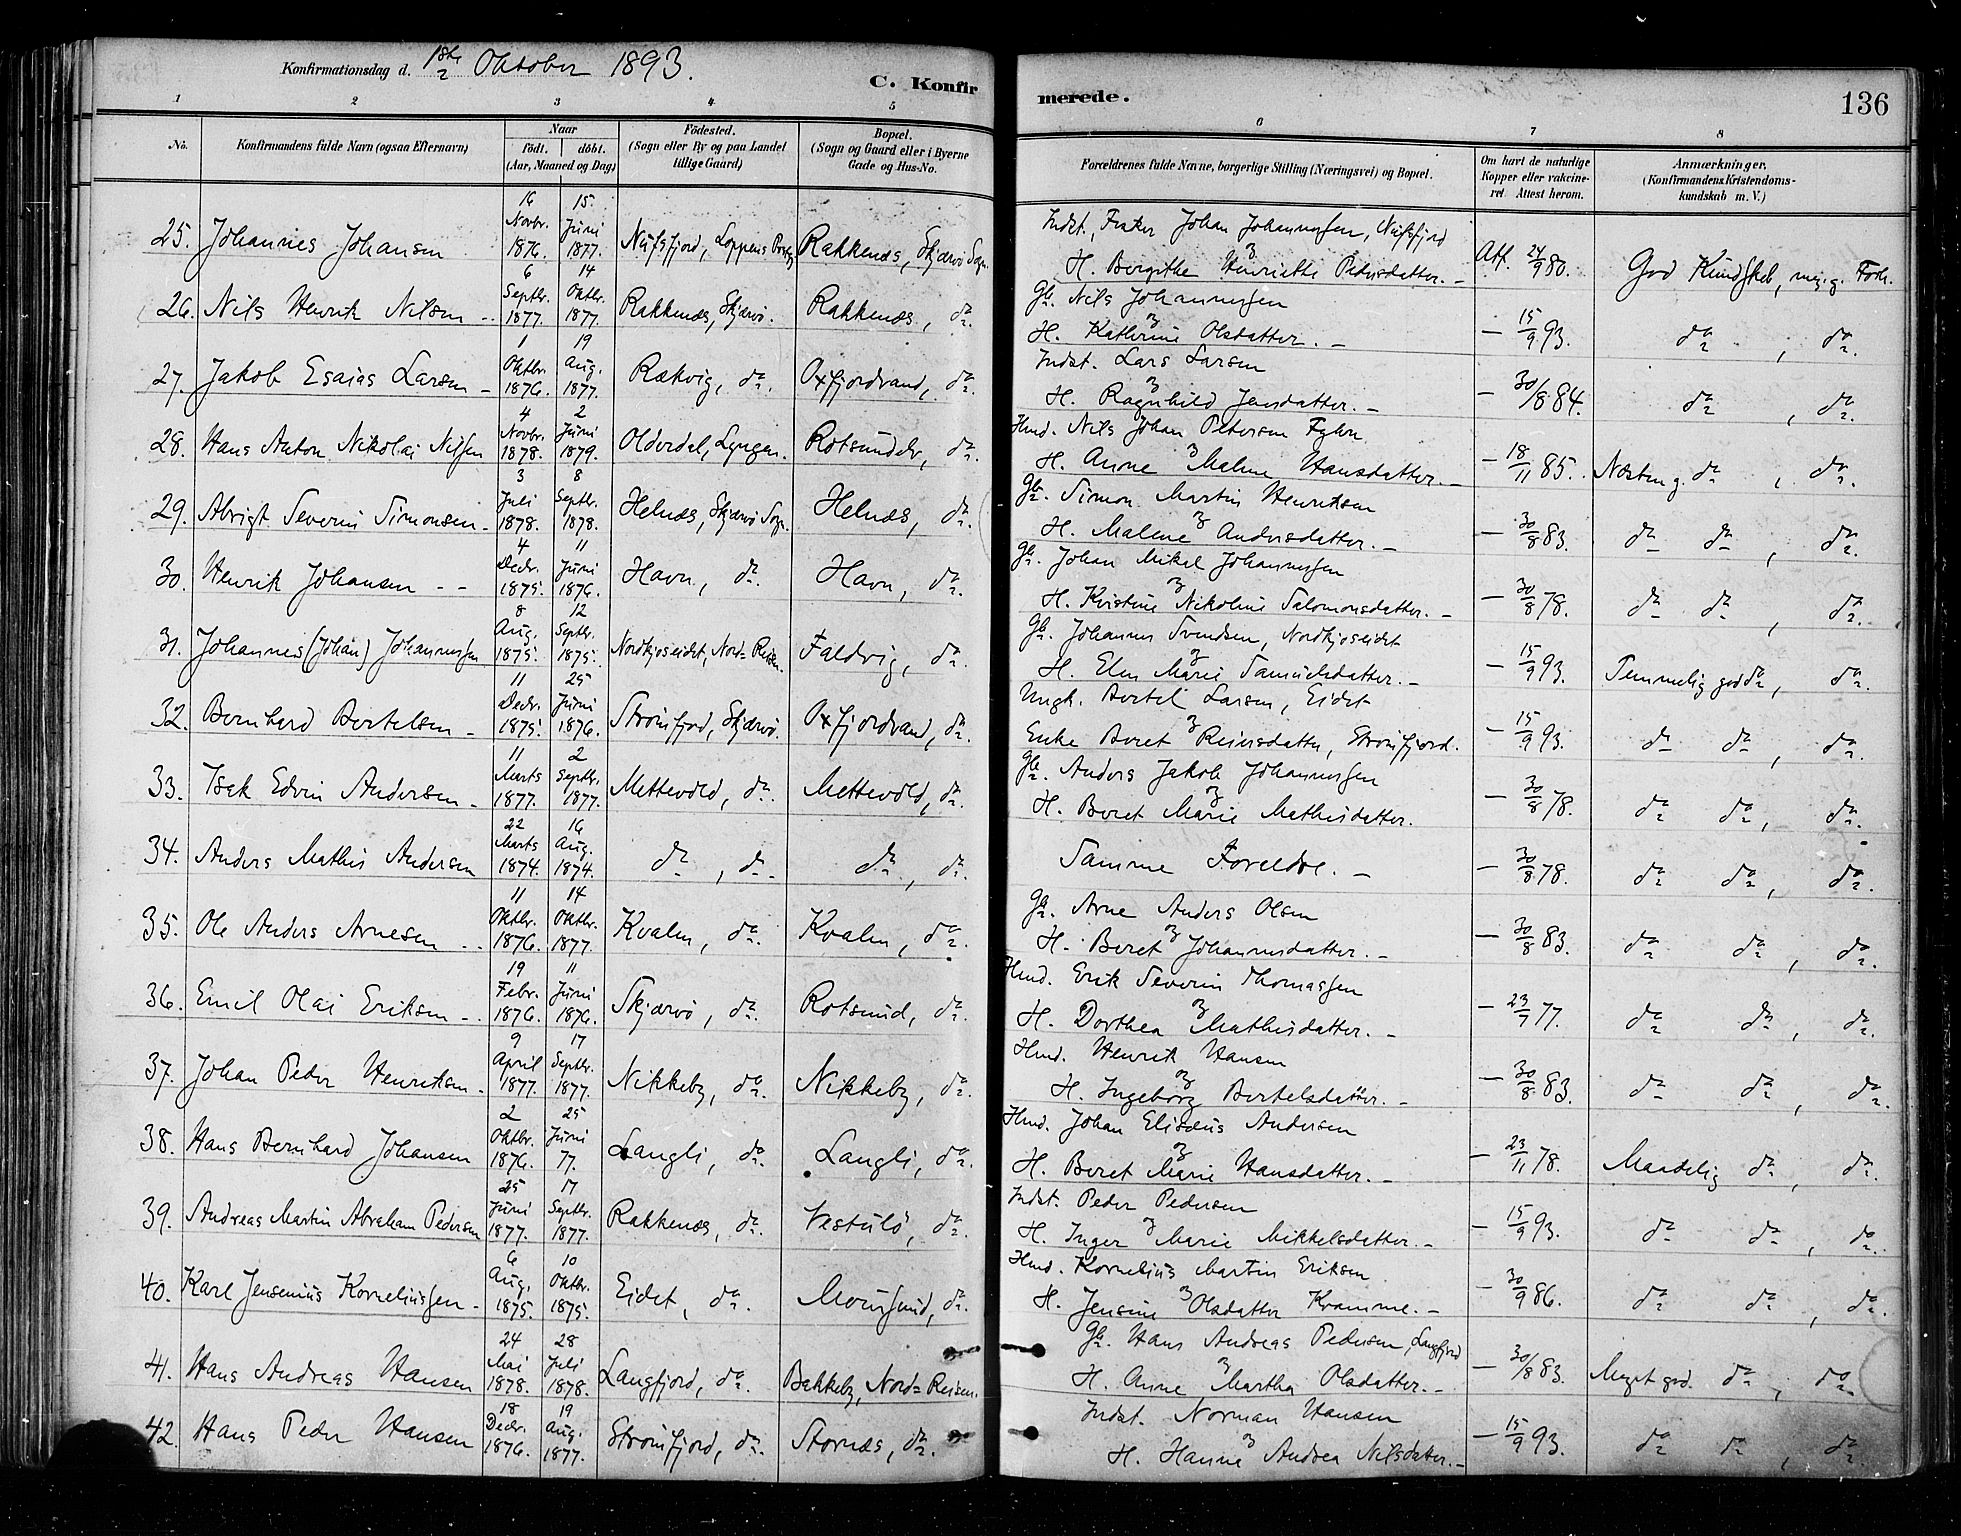 Konfirmationsdag d. 1ste Oktober 1893.
C. Konfirmerede.
136
1 2 3 4 5 6 7 8
No.
Konfirmandens fulde Navn (ogsaa Efternavn)
Naar
Födt. döbt.
(Aar, Maaned og Dag)
Födested.
(Sogn eller By og paa Landet
tillige Gaard)
Bopæl.
(Sogn og Gaard eller i Byerne
Gade og Hus-No.
Forældrenes fulde Navne, borgerlige Stilling (Næringsvei) og Bopæl.
Om havt de naturlige
Kopper eller vakcine-
ret Attest herom.
Anmærkninger.
(Konfirmandens Kristendoms-
kundskab m. V.)
25. Johannes Johansen 16 Novbr. 1876. 15 Juni 1877. Nufsfjord, Loppens Rakkenæs, Skjærvö Sogn. Indst., Johan Johannessen, Nufsfjord
H. Bergithe Henriette Pedersdatter. Att. 24/9 80. God Kundskab, meg. g. Forh.
26. Nils Henrik Nilsen 6 Septbr. 1877. 14 Oktbr. 1877. Rakkenæs, Skjærvö. Rakkenæs, do. Gb. Nils Johannessen
H. Kathrine Olsdatter. 15/9 93. do, do.
27. Jakob Esaias Larsen 1 Oktbr. 1876. 19 Aug. 1877. Rækvig, do. Oxfjordvand, do. Indst. Lars Larsen
H. Ragnhild Jensdatter. 30/8 84. do, do.
28. Hans Anton Nikolai Nilsen 4 Novbr. 1878. 2 Juni 1879. Olderdal, Lyngen. Rotsundelv, do. Hmd. Nils Johan Petersen
H. Anne Malene Hansdatter. 18/11 85. Næsten g. do, do.
29. Abrigt Severin Simonsen 3 Juli 1878. 8 Septbr. 1878. Helnæs, Skjærvö Sogn. Helnæs, do. Gb. Simon Martin Henriksen
H. Malene Andersdatter. 30/8 83. do do, do.
30. Henrik Johansen 4 Decbr. 1875. 11 Juni 1876. Havn, do. Havn, do. Gb. Johan Mikal Johannessen
H. Kristine Nikoline Salomonsdatter. 30/8 78. do do, do.
31. Johannes (Johan) Johannessen 8 Aug. 1875. 12 Septbr. 1875. Nordkjoseidet, Nord-Reisen. Faldvig, do. Gb. Johannes Svendsen, Nordkjoseidet
H. Elen Marie Samuelsdatter. 15/9 93. Temmelig god do, do.
32. Bernhard Bertelsen 11 Decbr. 1875. 25 Juni 1876. Strömfjord, Skjærvö. Oxfjordvand, do. Ungk. Bertel Larsen, Eidet
Enke Beret Reiersdatter, Strömfjord. 15/9 93. do do, do.
33. Isak Edvin Andersen 11 Marts 1877. 2 Septbr. 1877. Mettevold, do. Mettevold, do. Gb. Anders Jakob Johannessen
H. Beret Marie Mathisdatter. 30/8 78. do do, do.
34. Anders Mathis Andersen 22 Marts 1874. 16 Aug. 1874. do, do. do, do. Samme Foreldre. 30/8 78. do do, do.
35. Ole Anders Arnesen 11 Oktbr. 1876. 14 Oktbr. 1877. Kvalen, do. Kvalen, do. Gb. Arne Anders Olsen
H. Beret Johannesdatter. 30/8 83. do do, do.
36. Emil Olai Eriksen 19 Febr. 1876. 11 Juni 1876. Skjærvö, do. Rotsund, do. Hmd. Erik Severin Thomassen
H. Dorthea Mathisdatter. 23/7 77. do do, do.
37. Johan Peder Henriksen 9 April 1877. 17 Septbr. 1877. Nikkeby, do. Nikkeby, do. Hmd. Henrik Hansen
H. Ingeborg Bertelsdatter. 30/8 83. do do, do.
38. Hans Bernhard Johansen 2 Oktbr. 1876. 25 Juni 77. Langli, do. Langli, do. Hmd. Johan Elisæus Andersen
H. Beret Marie Hansdatter. 23/11 78. Maadelig do, do.
39. Andreas Martin Abraham Pedersen 25 Juni 1877. 17 Septbr. 1877. Rakkenæs, do. Vestulö, do. Indst. Peder Pedersen
H. Inger Marie Mikkelsdatter. 15/9 93. do do, do.
40. Karl Jensenius Korneliussen 6 Aug. 1875. 10 Oktbr. 1875. Eidet, do. Moursund, do. Hmd. Kornelius Martin Eriksen
H. Jensine Olsdatter Kramme. 30/9 86. do do, do.
41. Hans Andreas Hansen 24 Mai 1878. 28 Juli 1878. Langfjord, do. Bakkeby, Nord-Reisen. Gb. Hans Andreas Pedersen, Langfjord
H. Anne Martha Olsdatter. 30/8 83. Meget god. do, do.
42. Hans Peder Hansen 18 Decbr. 1876. 19 Aug. 1877. Strömfjord, do. Stornæs, do. Indst. Norman Hansen
H. Hanne Andrea Nilsdatter. 15/9 93. do do, do.